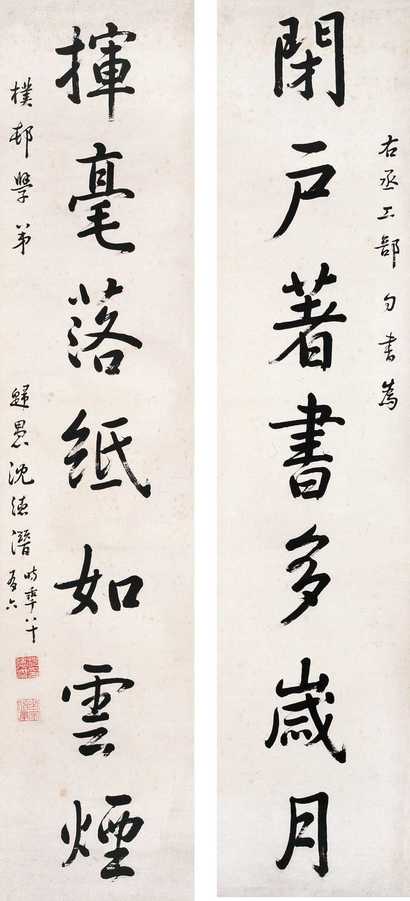 右丞工部句書為
閉戶著書多歲月
樸邨學弟
揮毫落紙如雲煙
歸愚沈德潛時年八十
有六